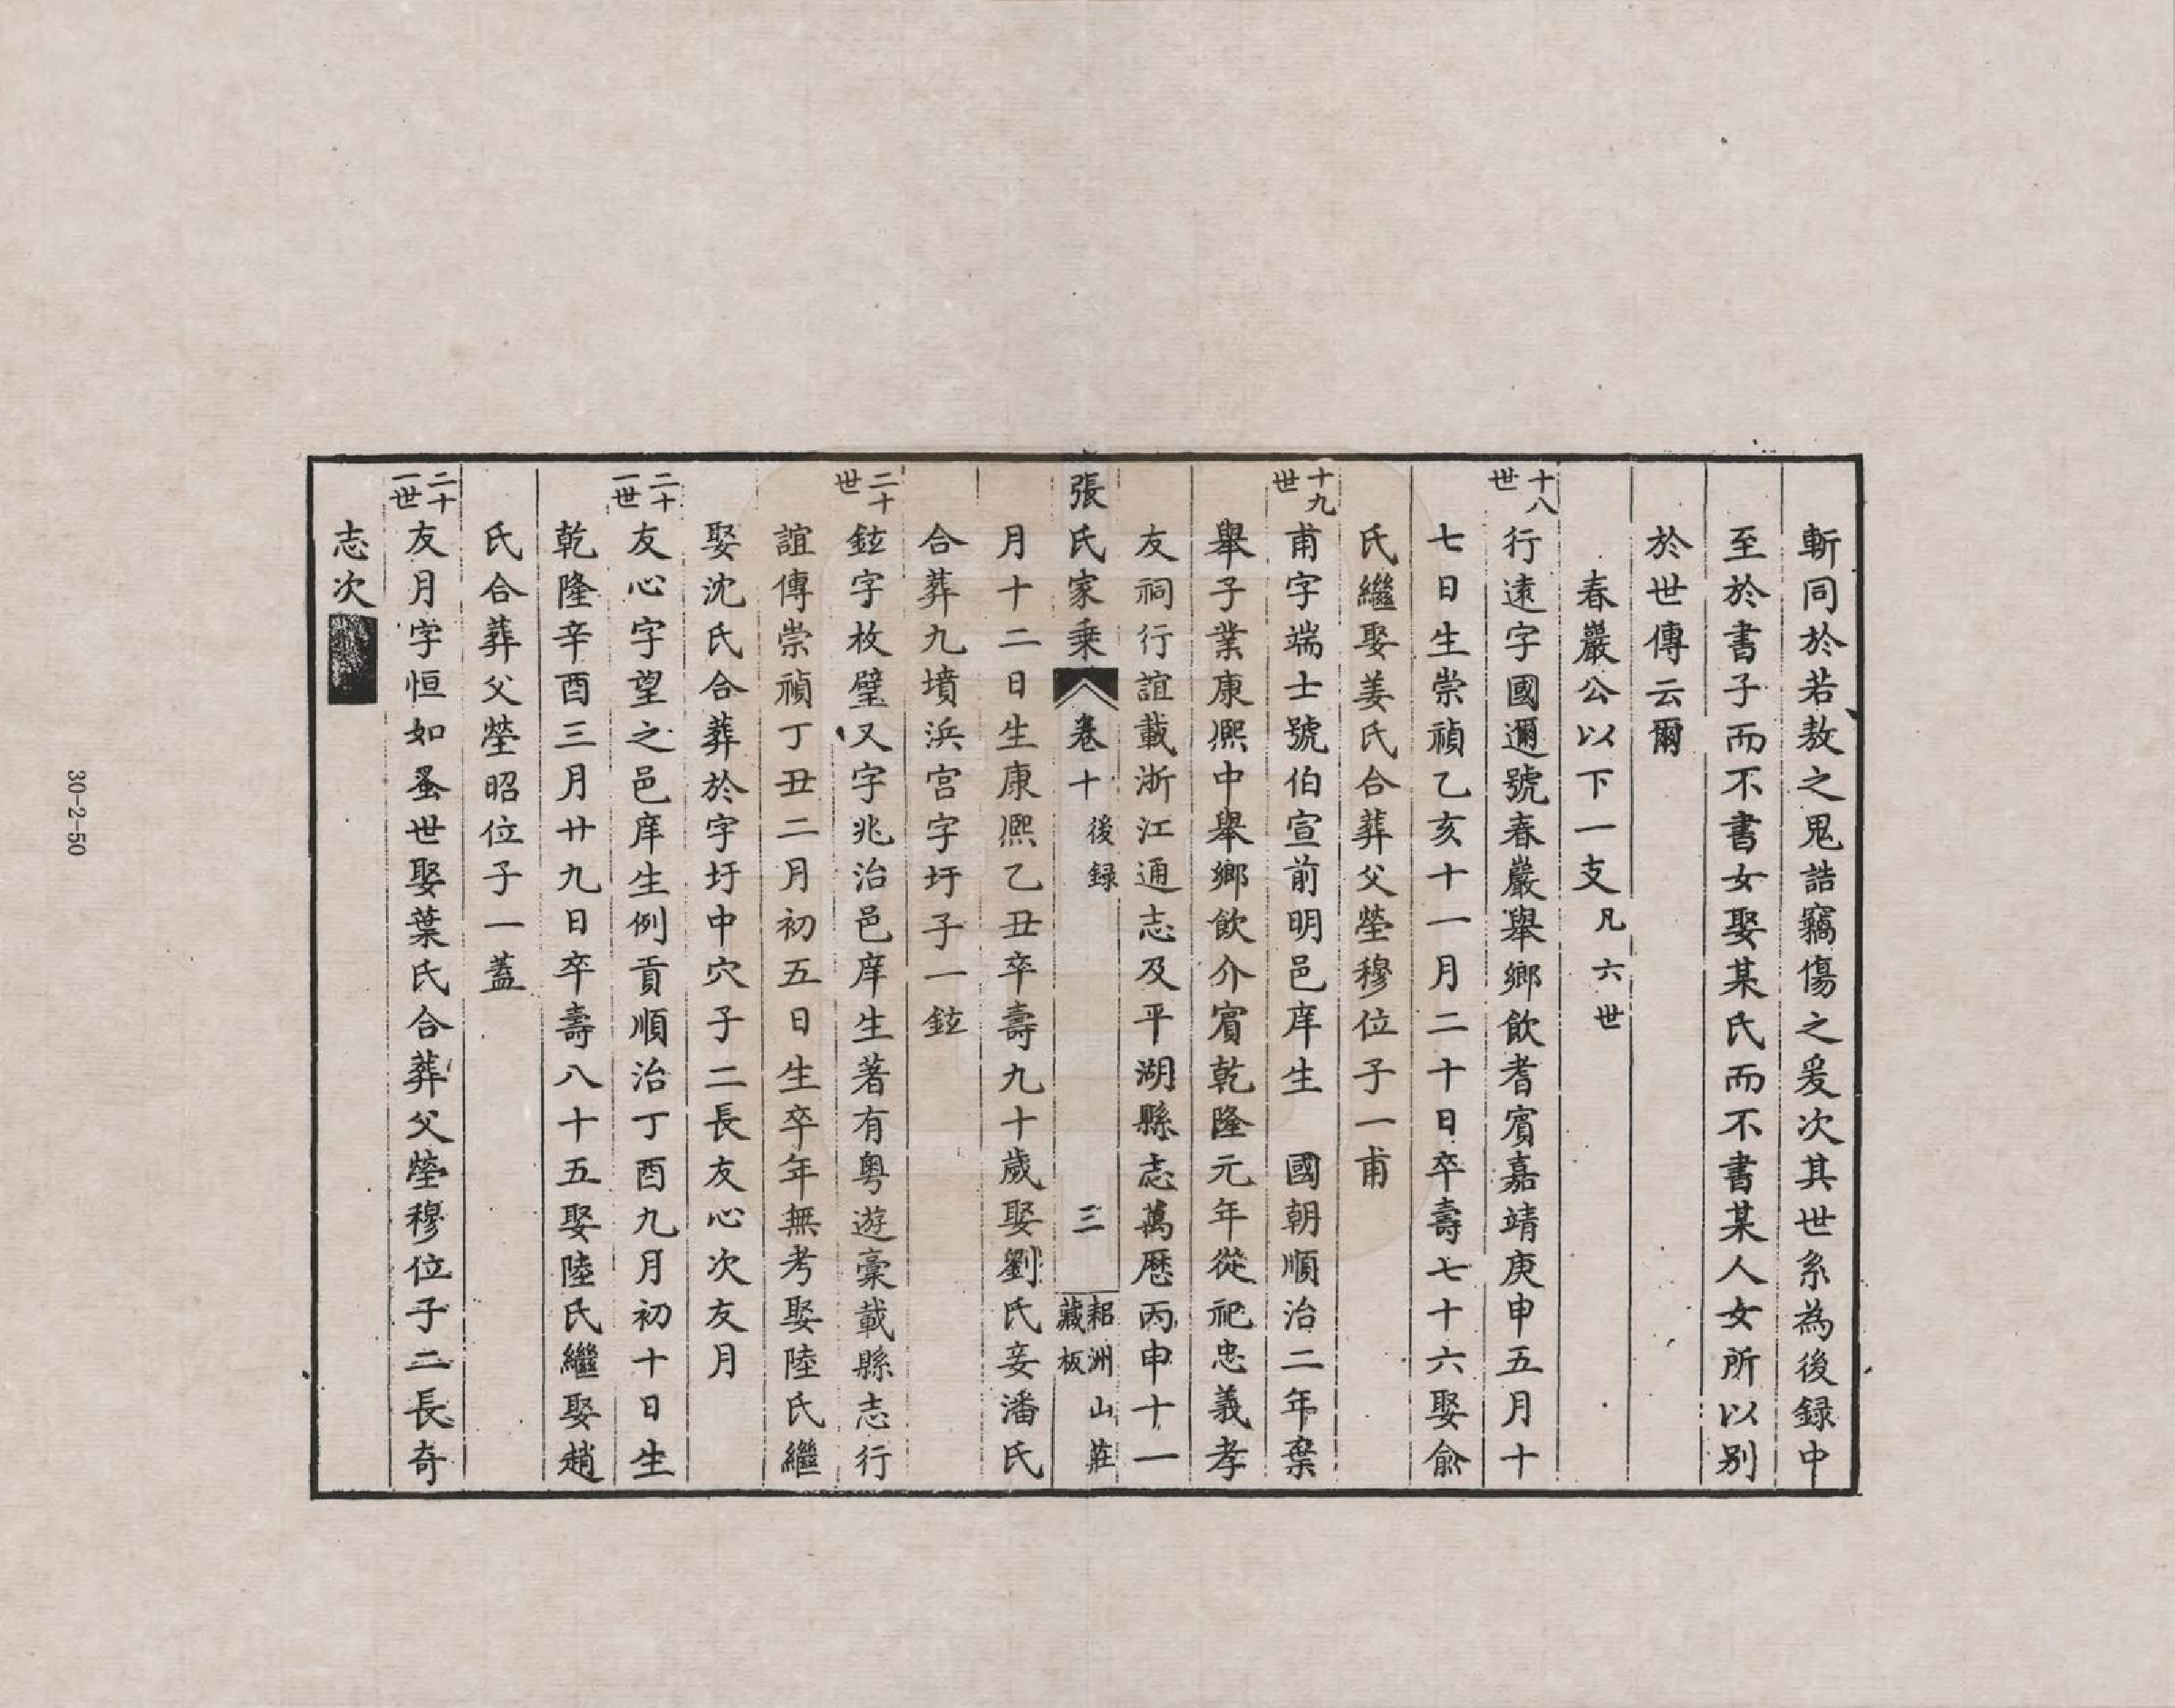 斬同於若敖之鬼誥竊傷之爰次其世系為後録中
至於書子而不書女娶某氏而不書某人女所以别
於世傳云爾
春巖公以下一支凡六世
十八世行遠字國邇號春巖舉鄉飲耆賓嘉靖庚申五月十
七日生崇禎乙亥十一月二十日卒壽七十六娶俞
氏繼娶姜氏合葬父塋穆位子一甫
十九世甫字端士號伯宣前明邑庠生 國朝順治二年棄
舉子業康熙中舉鄉飲介賓乾隆元年從祀忠義孝
友祠行誼載浙江通志及平湖縣志萬曆丙申十一
張氏家乘 卷十 後録 三 耜洲山莊藏板
月十二日生康熙乙丑卒壽九十歲娶劉氏妾潘氏
合葬九墳浜宫字圩子一鉉
二十世鉉字枚璧又字兆治邑庠生著有粤遊稾載縣志行
誼傳崇禎丁丑二月初五日生卒年無考娶陸氏繼
娶沈氏合葬於字圩中穴子二長友心次友月
二十一世友心字望之邑庠生例貢順治丁酉九月初十日生
乾隆辛酉三月廿九日卒壽八十五娶陸氏繼娶趙
氏合葬父塋昭位子一蓋
二十一世友月字恒如蚤世娶葉氏合葬父塋穆位子二長奇
志次
30-2-50